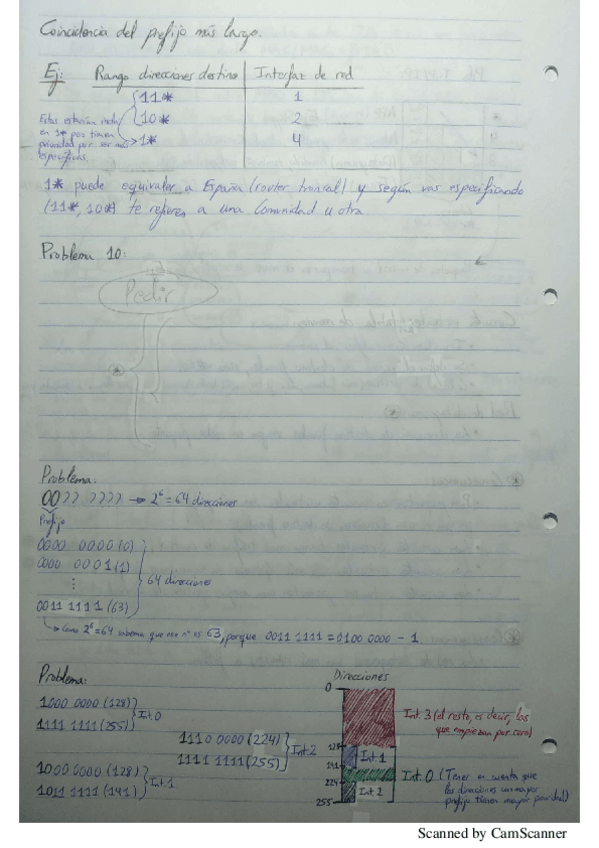 Coincidencia del prefijo más largo.
Ej: Rango direcciones destino Interfaz de red
11* 1
10* 2
1* 4
Estas estarían incluidas
en 1* pero tienen
prioridad por ser más
específicas.
1* puede equivaler a España (router troncal) y según vas especificando
(11*, 10*) te refieres a una Comunidad u otra.
Problema 10:
Pedir
Problema.
00?? ???? → 2⁶ = 64 direcciones
Prefijo
0000 0000 (0)
0000 0001 (1)
⋮ 64 direcciones
0011 1111 (63)
→ Como 2⁶ = 64 sabemos que ese nº es 63, porque 0011 1111 = 0100 0000 - 1.
Problema:
1000 0000 (128)
1111 1111 (255) Int. 0
1110 0000 (224)
1111 1111 (255) Int. 2
1000 0000 (128)
1011 1111 (191) Int. 1
Direcciones
0
Int. 3 (el resto, es decir, las
que empiezan por cero)
128
Int. 1
191
224
Int. 0 (Tener en cuenta que
las direcciones con mayor
prefijo tienen mayor prioridad)
Int. 2
255
Scanned by CamScanner